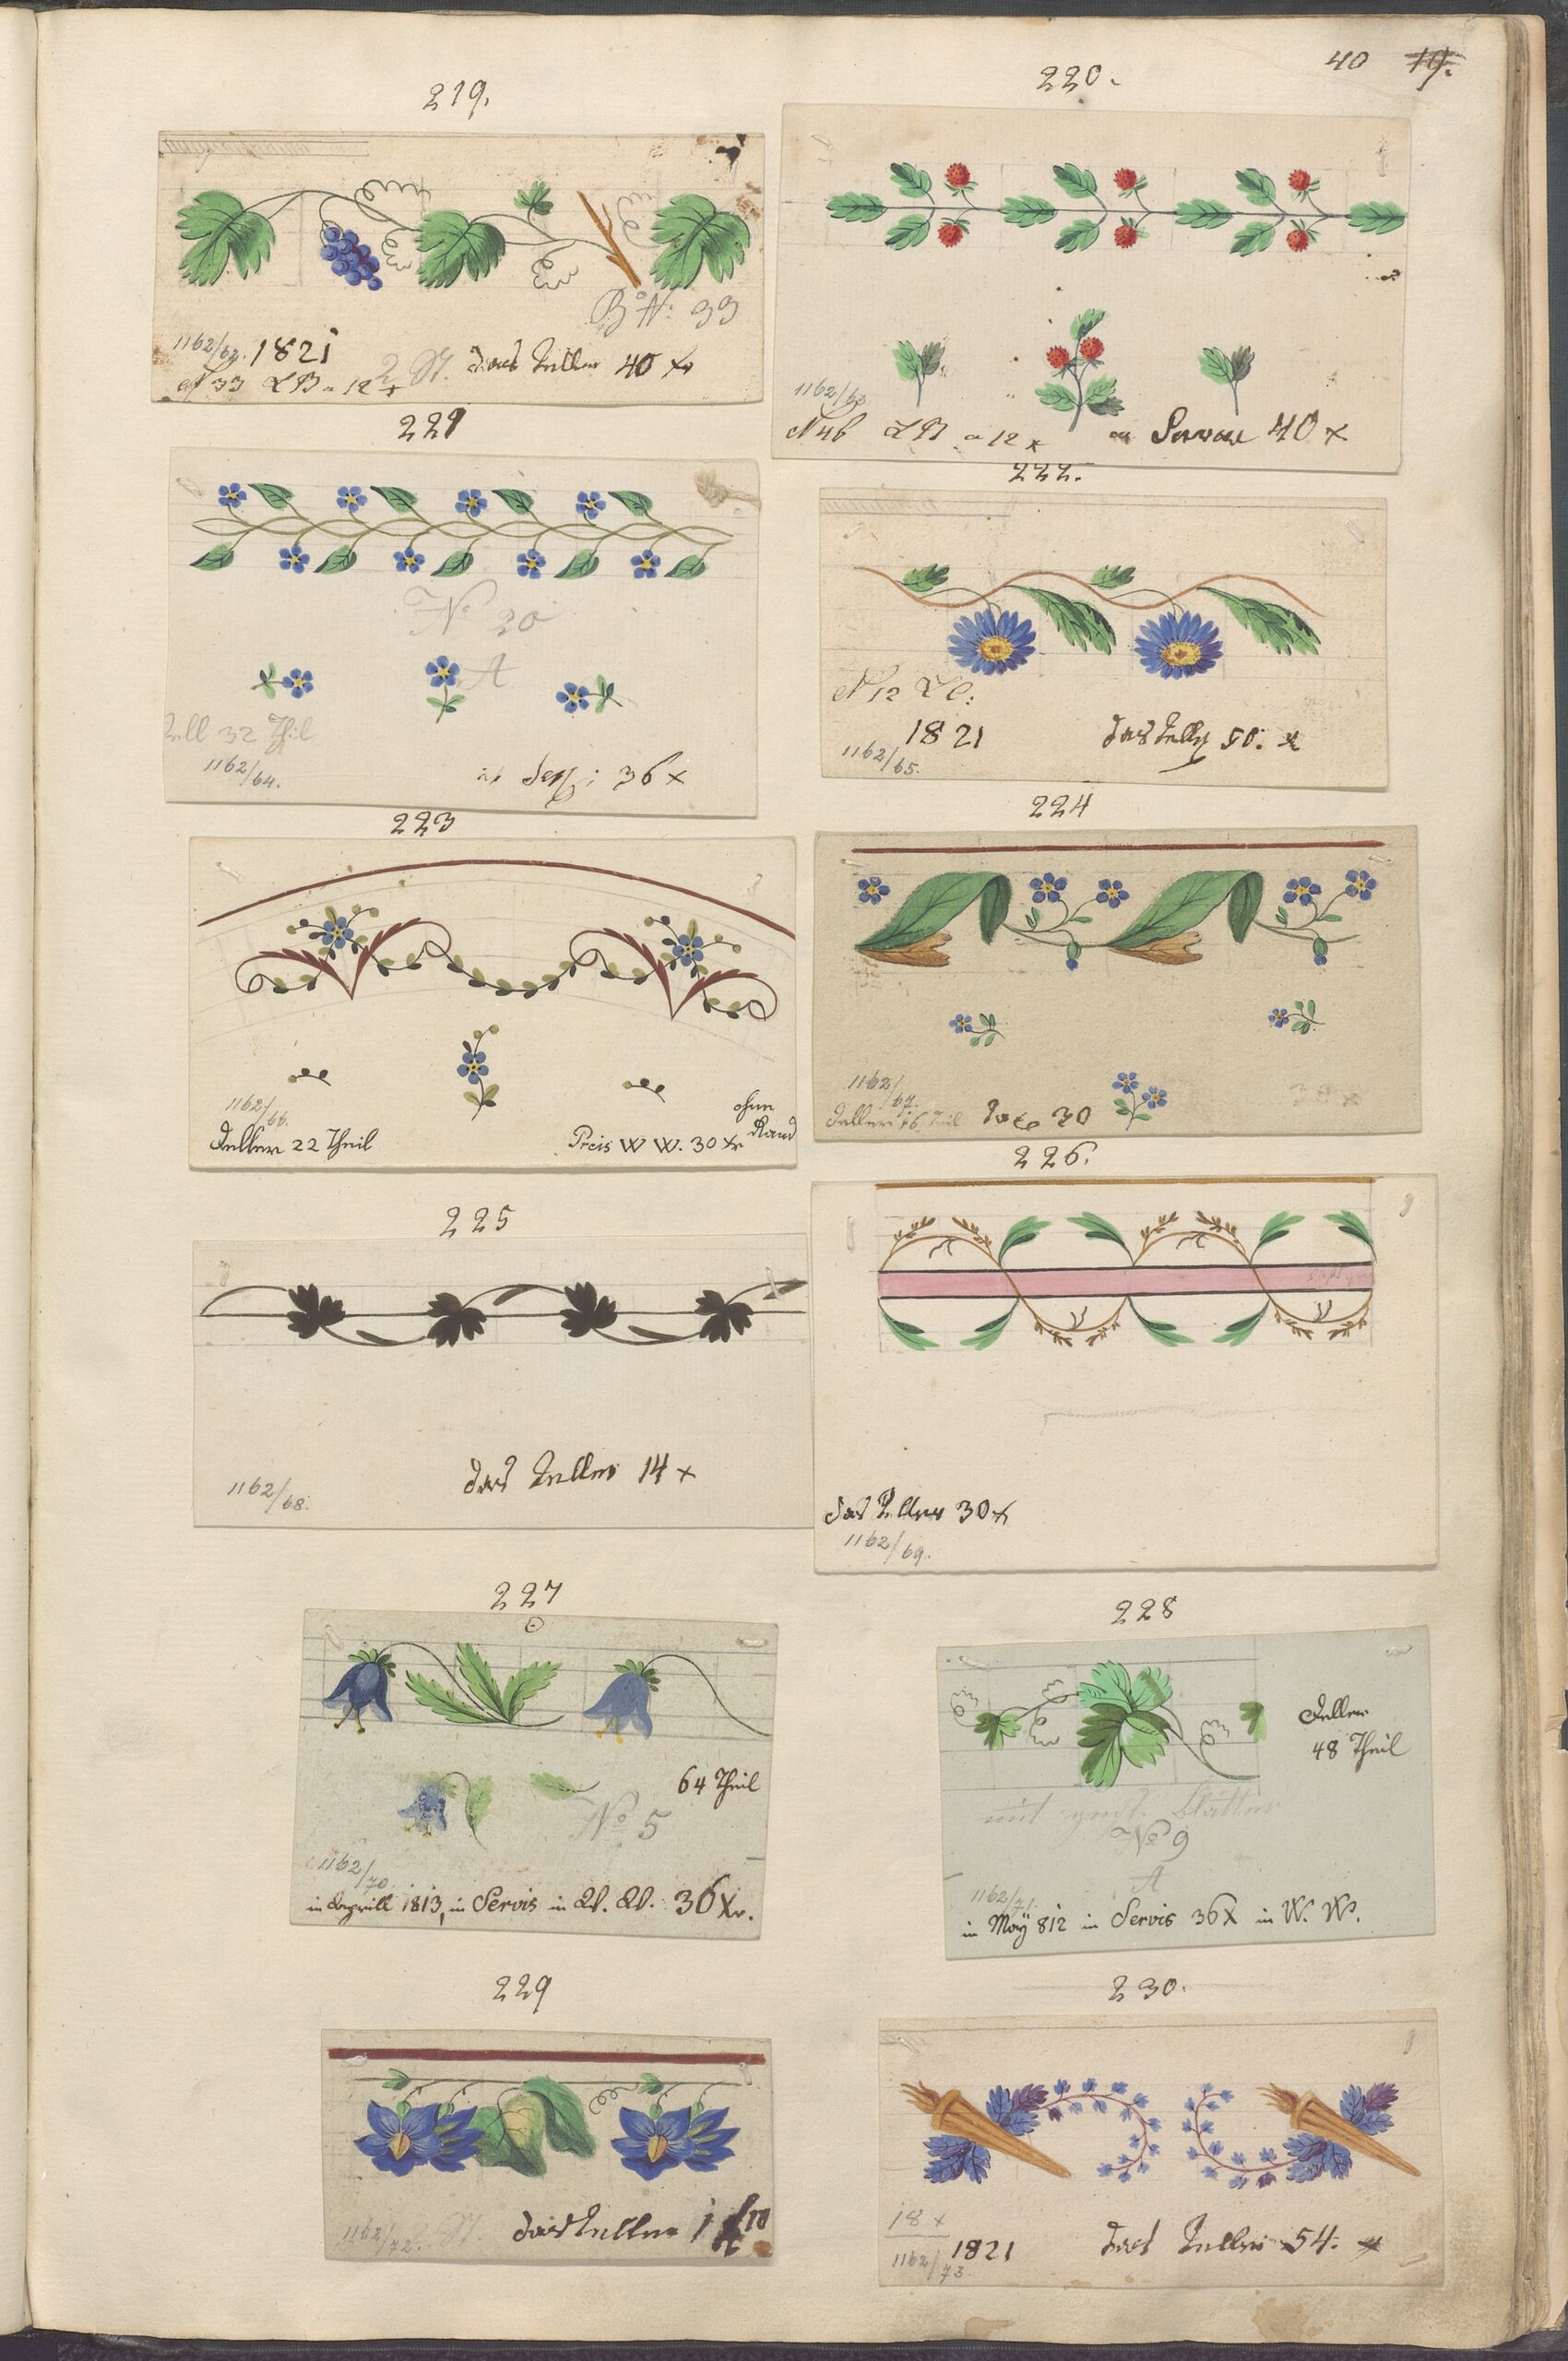 40 19.
219.
B No: 33
1162/62. 1821
N 33 LB a 12 x
das Teller 40 xr
220.
1162/63
N 46 LB a 12 x
Servise 40 x
221
No 30
A
Tell 32 Theil
1162/64.
Dess: 36 x
222.
N 12 L C:
1821 das Teller 50. x
1162/65.
223
1162/66.
ohne
Rand
Teller 22 Theil Preis W W. 30 xr
224
1162/67.
Teller 16 Theil 30
225
das Teller 14 x
1162/68.
226.
das Teller 30 x
1162/69.
227
64 Theil
No 5
1162/70.
in Aprill 1813, in Servis in W. W. 36 Xr.
228
Teller
48 Theil
mit Blätter
No 9
A
1162/71.
in Maÿ 812 in Servis 36 X in W. W.
229
1162/72. das Teller 1
230.
18 x
1162/73 1821 das Teller 54. x